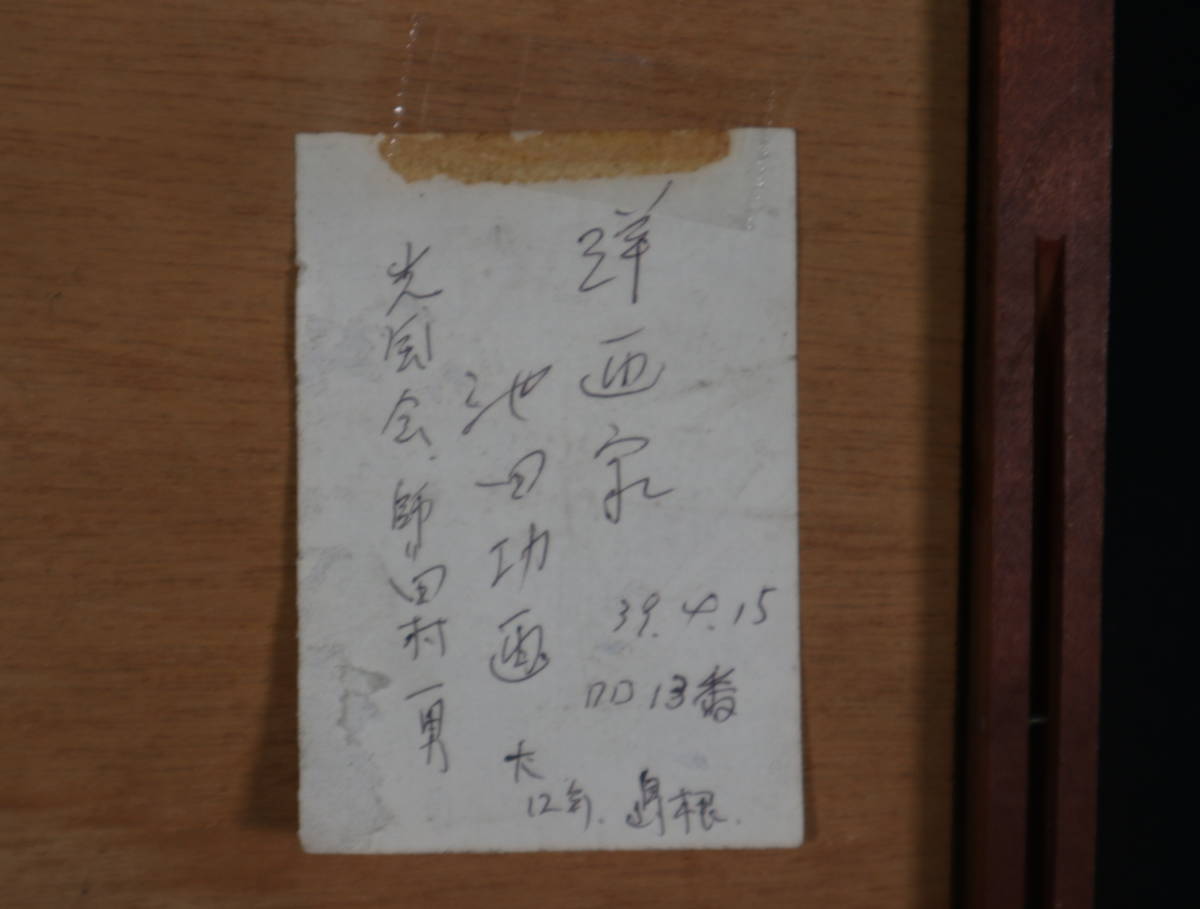 洋画家
39.4.15
13番
池田功画
大12年. 島根.
光風会. 師田村一男